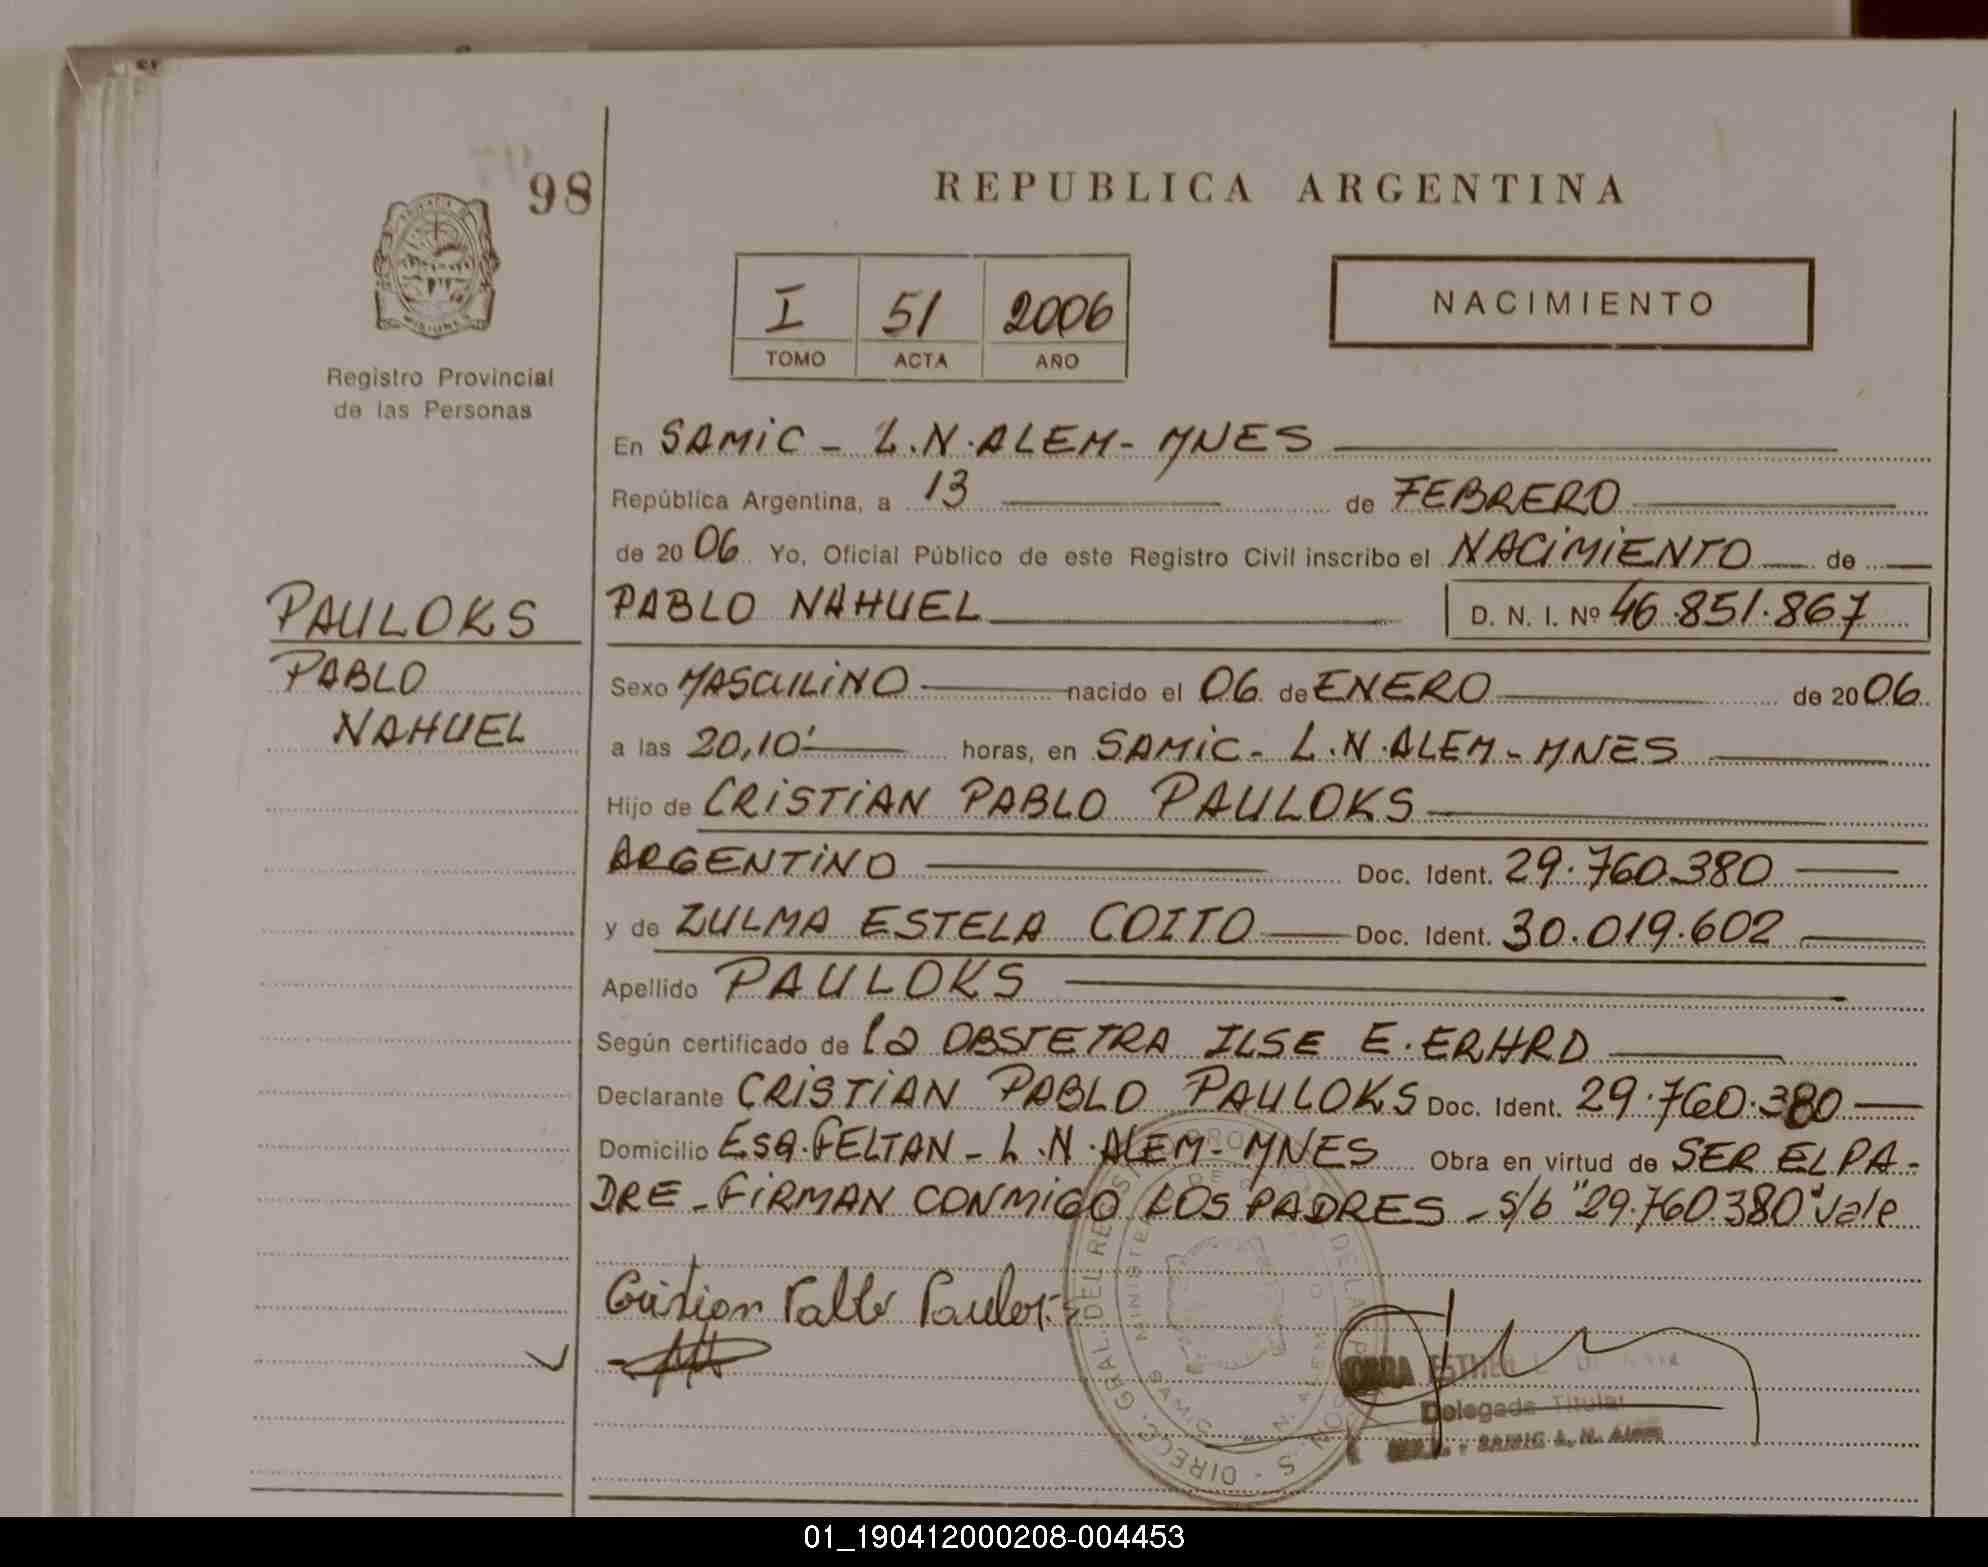 98
REPUBLICA ARGENTINA
I 51 2006
TOMO ACTA AÑO
NACIMIENTO
Registro Provincial
de las Personas
En SAMIC - L.N. ALEM - MNES
República Argentina, a 13 de FEBRERO
de 2006 Yo, Oficial Público de este Registro Civil inscribo el NACIMIENTO de
PABLO NAHUEL D. N. I. Nº 46.851.867
PAULOKS
PABLO
NAHUEL
Sexo MASCULINO nacido el 06 de ENERO de 2006
a las 20,10' horas, en SAMIC - L.N. ALEM - MNES
Hijo de CRISTIAN PABLO PAULOKS
ARGENTINO Doc. Ident. 29.760.380
y de ZULMA ESTELA COITO Doc. Ident. 30.019.602
Apellido PAULOKS
Según certificado de la OBSTETRA ILSE E. ERHRD
Declarante CRISTIAN PABLO PAULOKS Doc. Ident. 29.760.380
Domicilio ESQ. FELTAN - L.N. ALEM - MNES Obra en virtud de SER EL PA-
DRE - FIRMAN CONMIGO LOS PADRES - s/b "29.760.380" Vale
Cristian Pablo Pauloks
ESTHER
Delegada Titular
SAMIC L. N. Alem
01_190412000208-004453